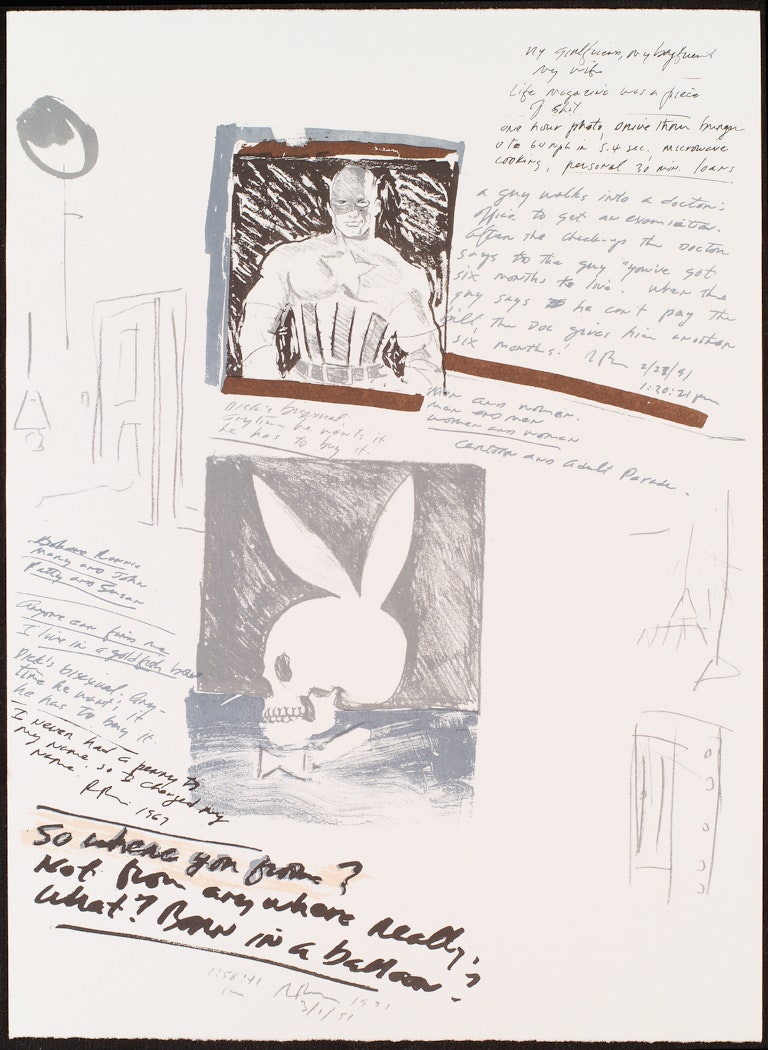 my girlfriend, my boyfriend
my wife
Life magazine was a piece
of shit
one hour photo, drive thru burger
0 to 60 mph in 5.4 sec. microwave
cooking, personal 30 min. loans
a guy walks into a doctor's
office to get an examination.
After the check-up the Doctor
says to the guy "you've got
six months to live. When the
guy says he can't pay the
bill, the Doc gives him another
six months.' 2/28/91
1:20:21 pm
Men and women.
men and men
women and women
Cartoon and Adult Parade.
Dick's bisexual,
Anytime he wants it
he has to buy it.
Ronnie
Mary and John
Patty and Susan
Anyone can find me
I live in a goldfish bowl
Dick's bisexual. Any-
time he wants it
he has to buy it.
I never had a penny to
my name, so I changed my
name. 1967
So where you from?
Not from anywhere really.
What? Born in a balloon?
1:58:41
pm 1991
3/1/91